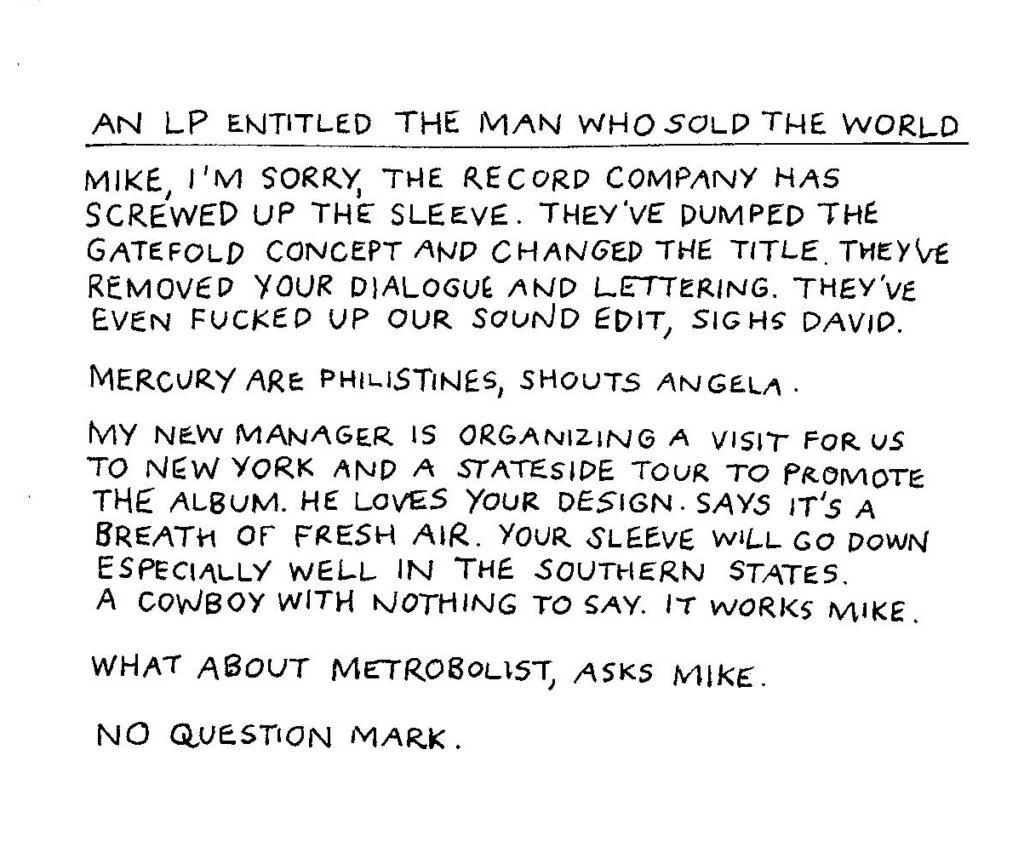 AN LP ENTITLED THE MAN WHO SOLD THE WORLD
MIKE, I'M SORRY, THE RECORD COMPANY HAS
SCREWED UP THE SLEEVE. THEY'VE DUMPED THE
GATEFOLD CONCEPT AND CHANGED THE TITLE. THEY'VE
REMOVED YOUR DIALOGUE AND LETTERING. THEY'VE
EVEN FUCKED UP OUR SOUND EDIT, SIGHS DAVID.
MERCURY ARE PHILISTINES, SHOUTS ANGELA.
MY NEW MANAGER IS ORGANIZING A VISIT FOR US
TO NEW YORK AND A STATESIDE TOUR TO PROMOTE
THE ALBUM. HE LOVES YOUR DESIGN. SAYS IT'S A
BREATH OF FRESH AIR. YOUR SLEEVE WILL GO DOWN
ESPECIALLY WELL IN THE SOUTHERN STATES.
A COWBOY WITH NOTHING TO SAY. IT WORKS MIKE.
WHAT ABOUT METROBOLIST, ASKS MIKE.
NO QUESTION MARK.